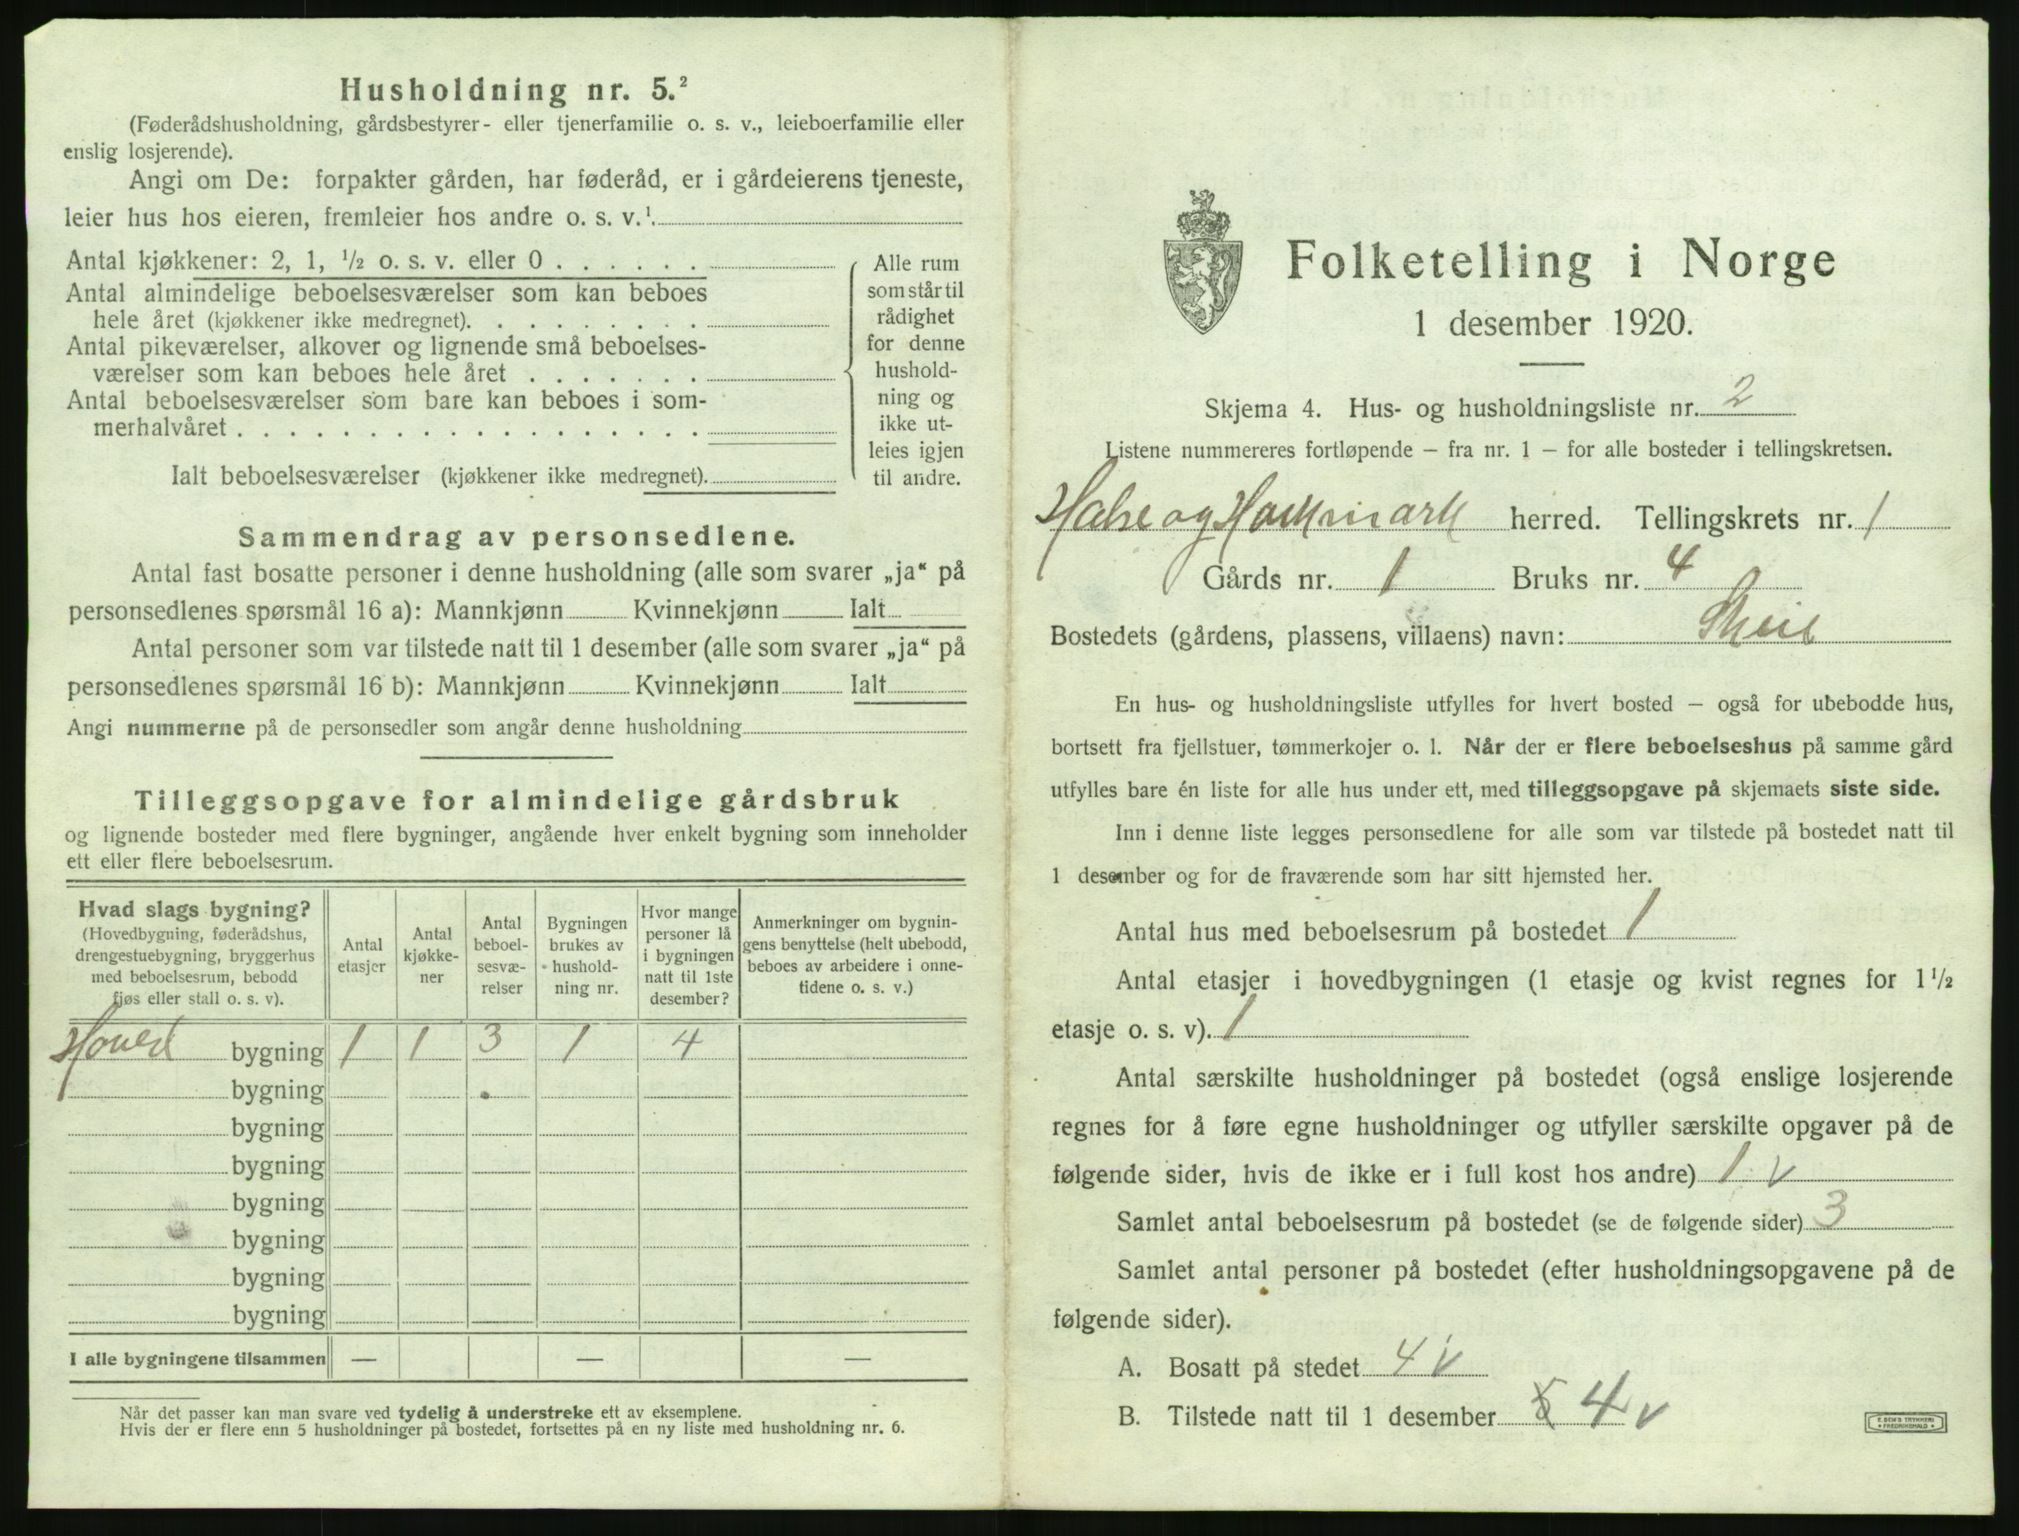 Husholdning nr. 5.²
(Føderådshusholdning, gårdsbestyrer- eller tjenerfamilie o. s. v., leieboerfamilie eller
enslig losjerende).
Angi om De: forpakter gården, har føderåd, er i gårdeierens tjeneste,
leier hus hos eieren, fremleier hos andre o. s. v.¹
Antal kjøkkener: 2, 1, ½ o. s. v. eller 0
Antal almindelige beboelsesværelser som kan beboes
hele året (kjøkkener ikke medregnet).
Antal pikeværelser, alkover og lignende små beboelses-
værelser som kan beboes hele året
Antal beboelsesværelser som bare kan beboes i som-
merhalvåret
Ialt beboelsesværelser (kjøkkener ikke medregnet).
Alle rum
som står til
rådighet
for denne
hushold-
ning og
ikke ut-
leies igjen
til andre.
Sammendrag av personsedlene.
Antal fast bosatte personer i denne husholdning (alle som svarer „ja“ på
personsedlenes spørsmål 16 a): Mannkjønn Kvinnekjønn Ialt
Antal personer som var tilstede natt til 1 desember (alle som svarer „ja“ på
personsedlenes spørsmål 16 b): Mannkjønn Kvinnekjønn Ialt
Angi nummerne på de personsedler som angår denne husholdning
Tilleggsopgave for almindelige gårdsbruk
og lignende bosteder med flere bygninger, angående hver enkelt bygning som inneholder
ett eller flere beboelsesrum.
Hvad slags bygning?
(Hovedbygning, føderådshus,
drengestuebygning, bryggerhus
med beboelsesrum, bebodd
fjøs eller stall o. s. v).
Antal
etasjer
Antal
kjøkke-
ner
Antal
beboel-
sesvæ-
relser
Bygningen
brukes av
hushold-
ning nr.
Hvor mange
personer lå
i bygningen
natt til 1ste
desember?
Anmerkninger om bygnin-
gens benyttelse (helt ubebodd,
beboes av arbeidere i onne-
tidene o. s. v.)
Hoved bygning 1 1 3 1 4
bygning
bygning
bygning
bygning
bygning
bygning
bygning
I alle bygningene tilsammen — — —
Når det passer kan man svare ved tydelig å understreke ett av eksemplene.
Hvis der er flere enn 5 husholdninger på bostedet, fortsettes på en ny liste med husholdning nr. 6.
Folketelling i Norge
1 desember 1920.
Skjema 4. Hus- og husholdningsliste nr. 2
Listene nummereres fortløpende – fra nr. 1 – for alle bosteder i tellingskretsen.
Halse og Harkmark herred. Tellingskrets nr. 1
Gårds nr. 1 Bruks nr. 4
Bostedets (gårdens, plassens, villaens) navn:
En hus- og husholdningsliste utfylles for hvert bosted – også for ubebodde hus,
bortsett fra fjellstuer, tømmerkojer o. l. Når der er flere beboelseshus på samme gård
utfylles bare én liste for alle hus under ett, med tilleggsopgave på skjemaets siste side.
Inn i denne liste legges personsedlene for alle som var tilstede på bostedet natt til
1 desember og for de fraværende som har sitt hjemsted her.
Antal hus med beboelsesrum på bostedet 1
Antal etasjer i hovedbygningen (1 etasje og kvist regnes for 1½
etasje o. s. v). 1
Antal særskilte husholdninger på bostedet (også enslige losjerende
regnes for å føre egne husholdninger og utfyller særskilte opgaver på de
følgende sider, hvis de ikke er i full kost hos andre) 1 v
Samlet antal beboelsesrum på bostedet (se de følgende sider) 3
Samlet antal personer på bostedet (efter husholdningsopgavene på de
følgende sider).
A. Bosatt på stedet 4 v
B. Tilstede natt til 1 desember 4 v
E. SEM'S TRYKKERI
FREDRIKSHALD